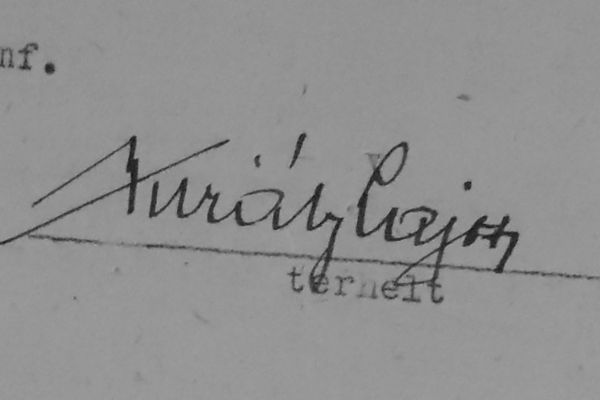 nf.
Király Lajos
terhelt